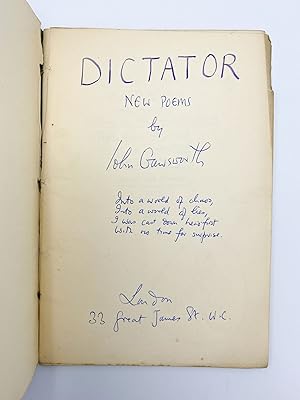 DICTATOR
NEW POEMS
by
John Gawsworth
Into a world of chaos,
Into a world of lies,
I was cast down headfirst
With no time for surprise.
London
33 Great James St. W.C.